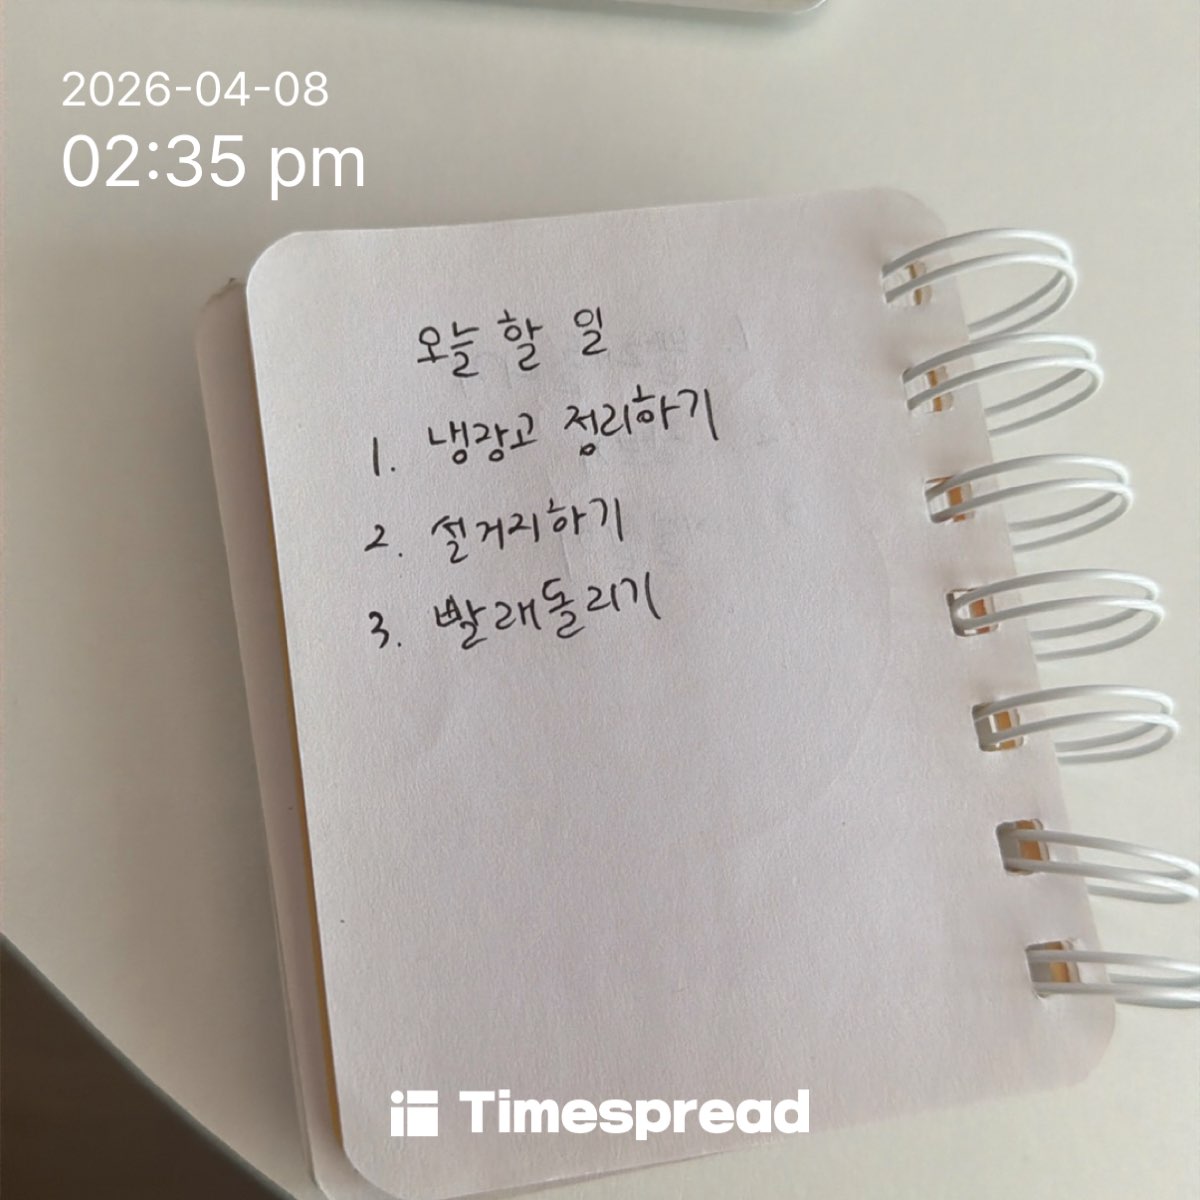 2026-04-08
02:35 pm
오늘 할 일
1. 냉장고 정리하기
2. 설거지하기
3. 빨래돌리기
Timespread